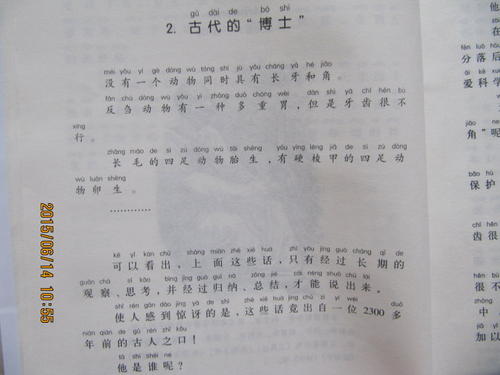 gǔ dài de bó shì
2. 古代的“博士”
méi yǒu yí gè dòng wù tóng shí jù yǒu cháng yá hé jiǎo
没有一个动物同时具有长牙和角。
fǎn chú dòng wù yǒu yì zhǒng duō chóng wèi dàn shì yá chǐ hěn bù
反刍动物有一种多重胃，但是牙齿很不
xíng
行。
zhǎng máo de sì zú dòng wù tāi shēng yǒu yìng léng jiǎ de sì zú dòng
长毛的四足动物胎生，有硬棱甲的四足动
wù luǎn shēng
物卵生。
…………
kě yǐ kàn chū shàng miàn zhè xiē huà zhǐ yǒu jīng guò cháng qī de
可以看出，上面这些话，只有经过长期的
guān chá sī kǎo bìng jīng guò guī nà zǒng jié cái néng shuō chū lái
观察、思考，并经过归纳、总结，才能说出来。
shǐ rén gǎn dào jīng yà de shì zhè xiē huà jìng chū zì yí wèi duō
使人感到惊讶的是，这些话竟出自一位2300多
nián qián de gǔ rén zhī kǒu
年前的古人之口！
tā shì shéi ne
他是谁呢？
在
fēn luò hòu
分落后
ài kē xué
爱科学
jiǎo ne
角”呢
bǎo hù
保护
chǐ hěn
齿很
hěn bù
很不
zhōng
中
jiā yǐ
加以
2015/06/14 10:55